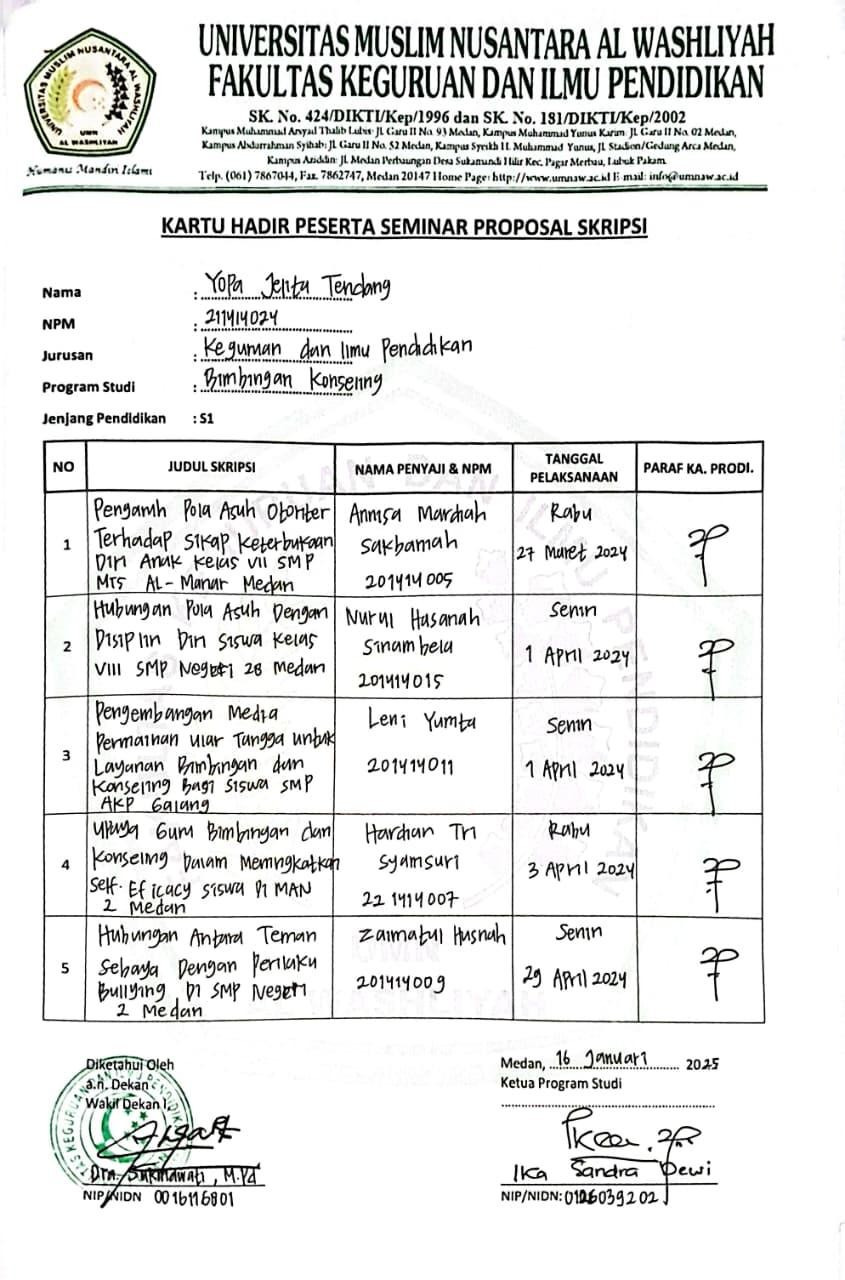 UNIVERSITAS MUSLIM NUSANTARA AL WASHLIYAH
FAKULTAS KEGURUAN DAN ILMU PENDIDIKAN
SK. No. 424/DIKTI/Kep/1996 dan SK. No. 181/DIKTI/Kep/2002
Kampus Muhammad Arsyad Thalib Lubis: Jl. Garu II No. 93 Medan, Kampus Muhammad Yunus Karim: Jl. Garu II No. 02 Medan,
Kampus Abdurrahman Syihab: Jl. Garu II No. 52 Medan, Kampus Syeikh H. Muhammad Yunus, Jl. Stadion/Gedung Arca Medan,
Kampus Aziddin: Jl. Medan Perbaungan Desa Sukamandi Hilir Kec. Pagar Merbau, Lubuk Pakam.
Telp. (061) 7867044, Fax. 7862747, Medan 20147 Home Page: http://www.umnaw.ac.id E-mail: info@umnaw.ac.id
UNIVERSITAS MUSLIM NUSANTARA AL WASHLIYAH
UMN
AL WASHLIYAH
KARTU HADIR PESERTA SEMINAR PROPOSAL SKRIPSI
Nama : Yopa Jelita Tendang
NPM : 211414024
Jurusan : Keguruan dan Ilmu Pendidikan
Program Studi : Bimbingan Konseling
Jenjang Pendidikan : S1
NO JUDUL SKRIPSI NAMA PENYAJI & NPM TANGGAL PELAKSANAAN PARAF KA. PRODI.
1
Pengaruh Pola Asuh Otoriter
Terhadap Sikap Keterbukaan
Diri Anak Kelas VII SMP
MTS AL-Manar Medan
Annisa Mardiah
Sakbamah
201414005
Rabu
27 Maret 2024
2
Hubungan Pola Asuh Dengan
Disiplin Diri Siswa Kelas
VIII SMP Negeri 28 Medan
Nurul Hasanah
Sinambela
201414015
Senin
1 April 2024
3
Pengembangan Media
Permainan Ular Tangga untuk
Layanan Bimbingan dan
Konseling Bagi Siswa SMP
AKP Galang
Leni Yumita
201414011
Senin
1 April 2024
4
Upaya Guru Bimbingan dan
Konseling Dalam Meningkatkan
Self-Eficacy Siswa Di MAN
2 Medan
Hardian Tri
Syamsuri
221414007
Rabu
3 April 2024
5
Hubungan Antara Teman
Sebaya Dengan Perilaku
Bullying Di SMP Negeri
2 Medan
Zaimatul Husnah
201414009
Senin
29 April 2024
Diketahui Oleh
a.n. Dekan
Wakil Dekan I,
Dra. Sukmawati, M.Pd
NIP/NIDN 0016116801
Medan, 16 Januari 2025
Ketua Program Studi
Ika Sandra Dewi
NIP/NIDN: 0126039202